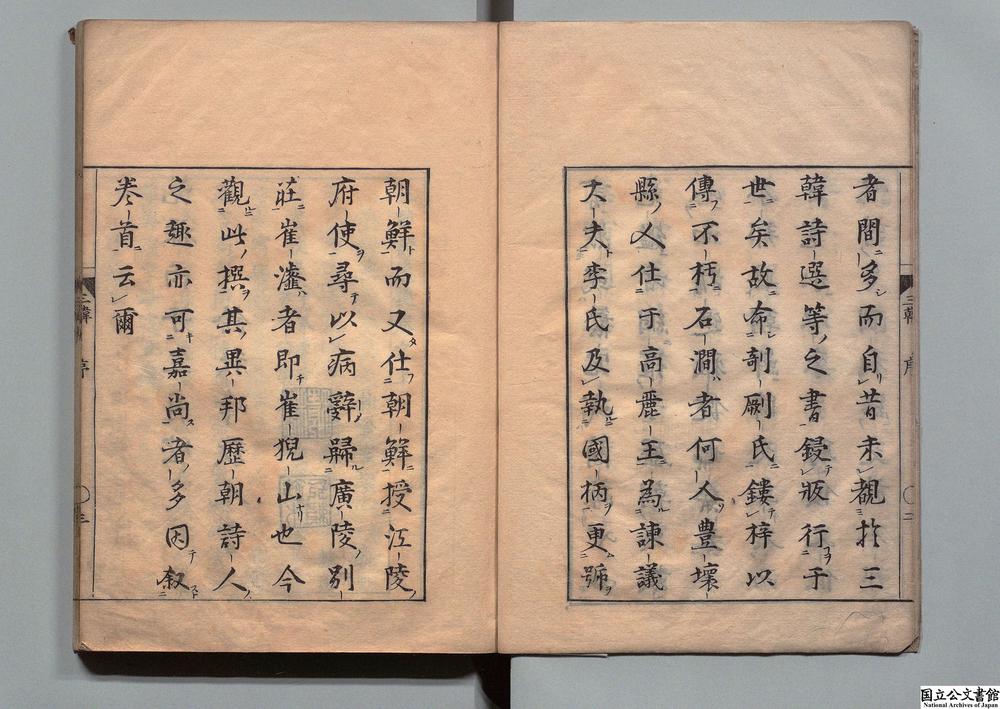 者間多而自昔未覩於三
韓詩選等之書鋟版行于
世矣故命剞劂氏鏤梓以
傳不朽石澗者何人豊壤
縣人仕于高麗王為諫議
大夫李氏及執國柄更號
三韓 序 二
朝鮮而又仕朝鮮授江陵
府使尋以病辭歸廣陵別
莊崔瀣者即崔猊山也今
觀此撰其異邦歷朝詩人
之趣亦可嘉尚者多因叙
卷首云爾
三韓 序 三
国立公文書館
National Archives of Japan